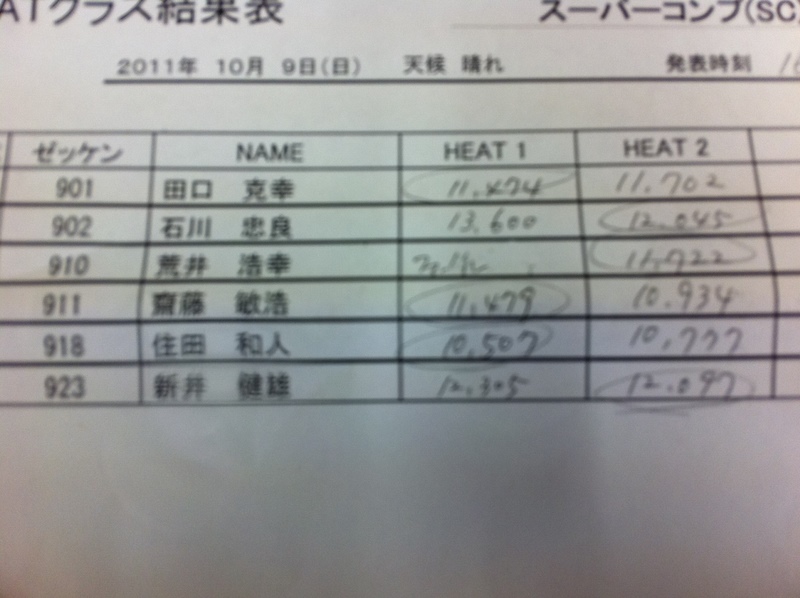 ATクラス結果表 スーパーコンブ(SC)
2011年 10月 9日(日) 天候 晴れ 発表時刻
ゼッケン NAME HEAT 1 HEAT 2
901 田口 克幸 11.474 11.702
902 石川 忠良 13.600 12.045
910 荒井 浩幸 11.722
911 齋藤 敏浩 11.479 10.934
918 住田 和人 10.507 10.777
923 新井 健雄 12.305 12.097